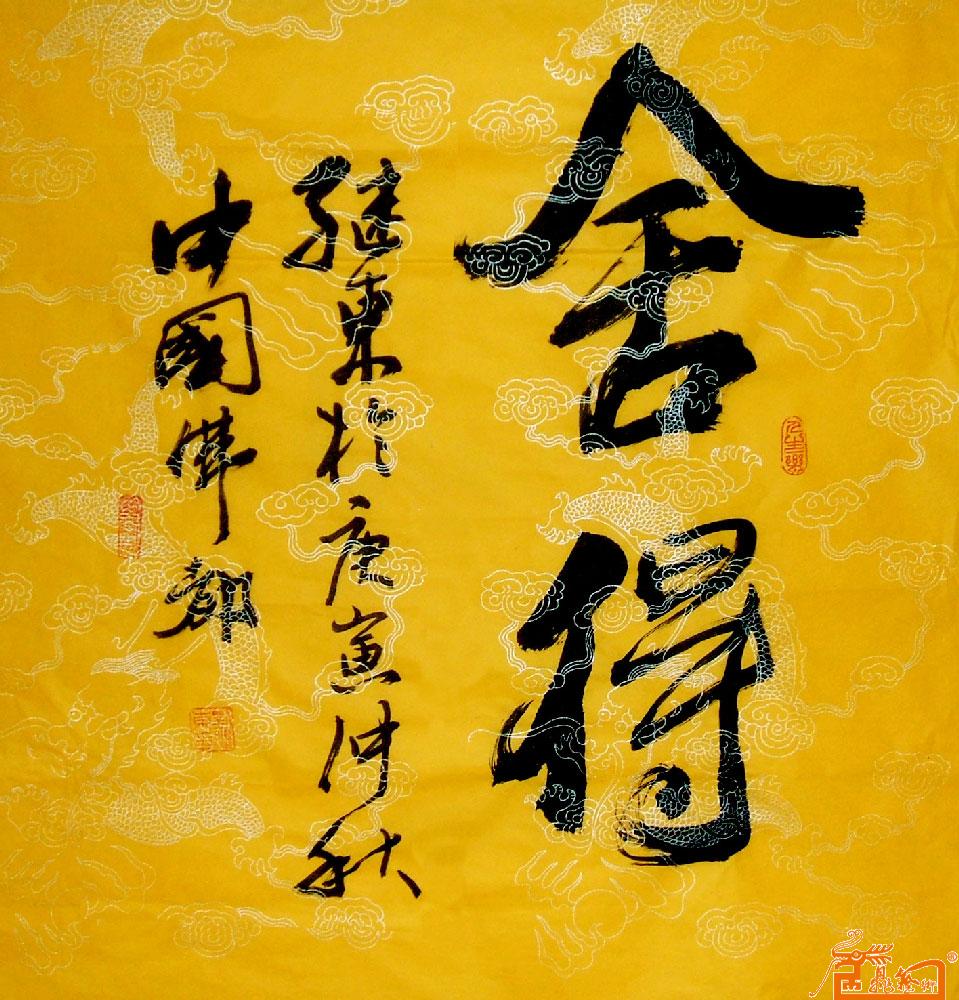 舍得
继東於庚寅仲秋
中國佛都